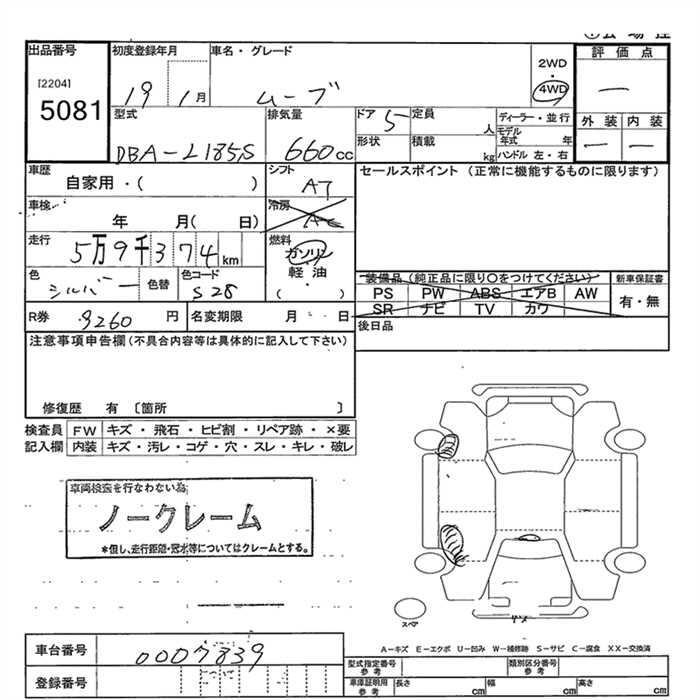 出品番号
[2204]
5081
初度登録年月
19 1月
車名・グレード
ムーブ
2WD
・
4WD
評価点
—
外装 内装
— —
型式
DBA-L185S
排気量
660cc
ドア 5
定員 人
ディーラー・並行
モデル年式 年
形状
積載 kg
ハンドル 左・右
車歴
自家用・( )
シフト
AT
セールスポイント (正常に機能するものに限ります)
車検
年 月( 日)
冷房
AC
走行
5万9千374km
燃料
ガソリン
軽油
( ・ )
色
シルバー
色替
色コード
S28
装備品(純正品に限り○をつけてください)
PS PW ABS エアB AW
SR ナビ TV カワ
新車保証書
有・無
R券 9260円
名変期限 月 日
後日品
注意事項申告欄(不具合内容等は具体的に記入して下さい)
修復歴 有〔箇所 〕
検査員記入欄
FW キズ・飛石・ヒビ割・リペア跡・×要
内装 キズ・汚レ・コゲ・穴・スレ・キレ・破レ
車両検査を行なわない為
ノークレーム
*但し、走行距離・冠水等についてはクレームとする。
スペア
A-キズ E-エクボ U-凹み W-補修跡 S-サビ C-腐食 XX-交換済
車台番号 0007839
登録番号
型式指定番号 参考
類別区分番号 参考
車庫証明用 参考
長さ cm 幅 cm 高さ cm